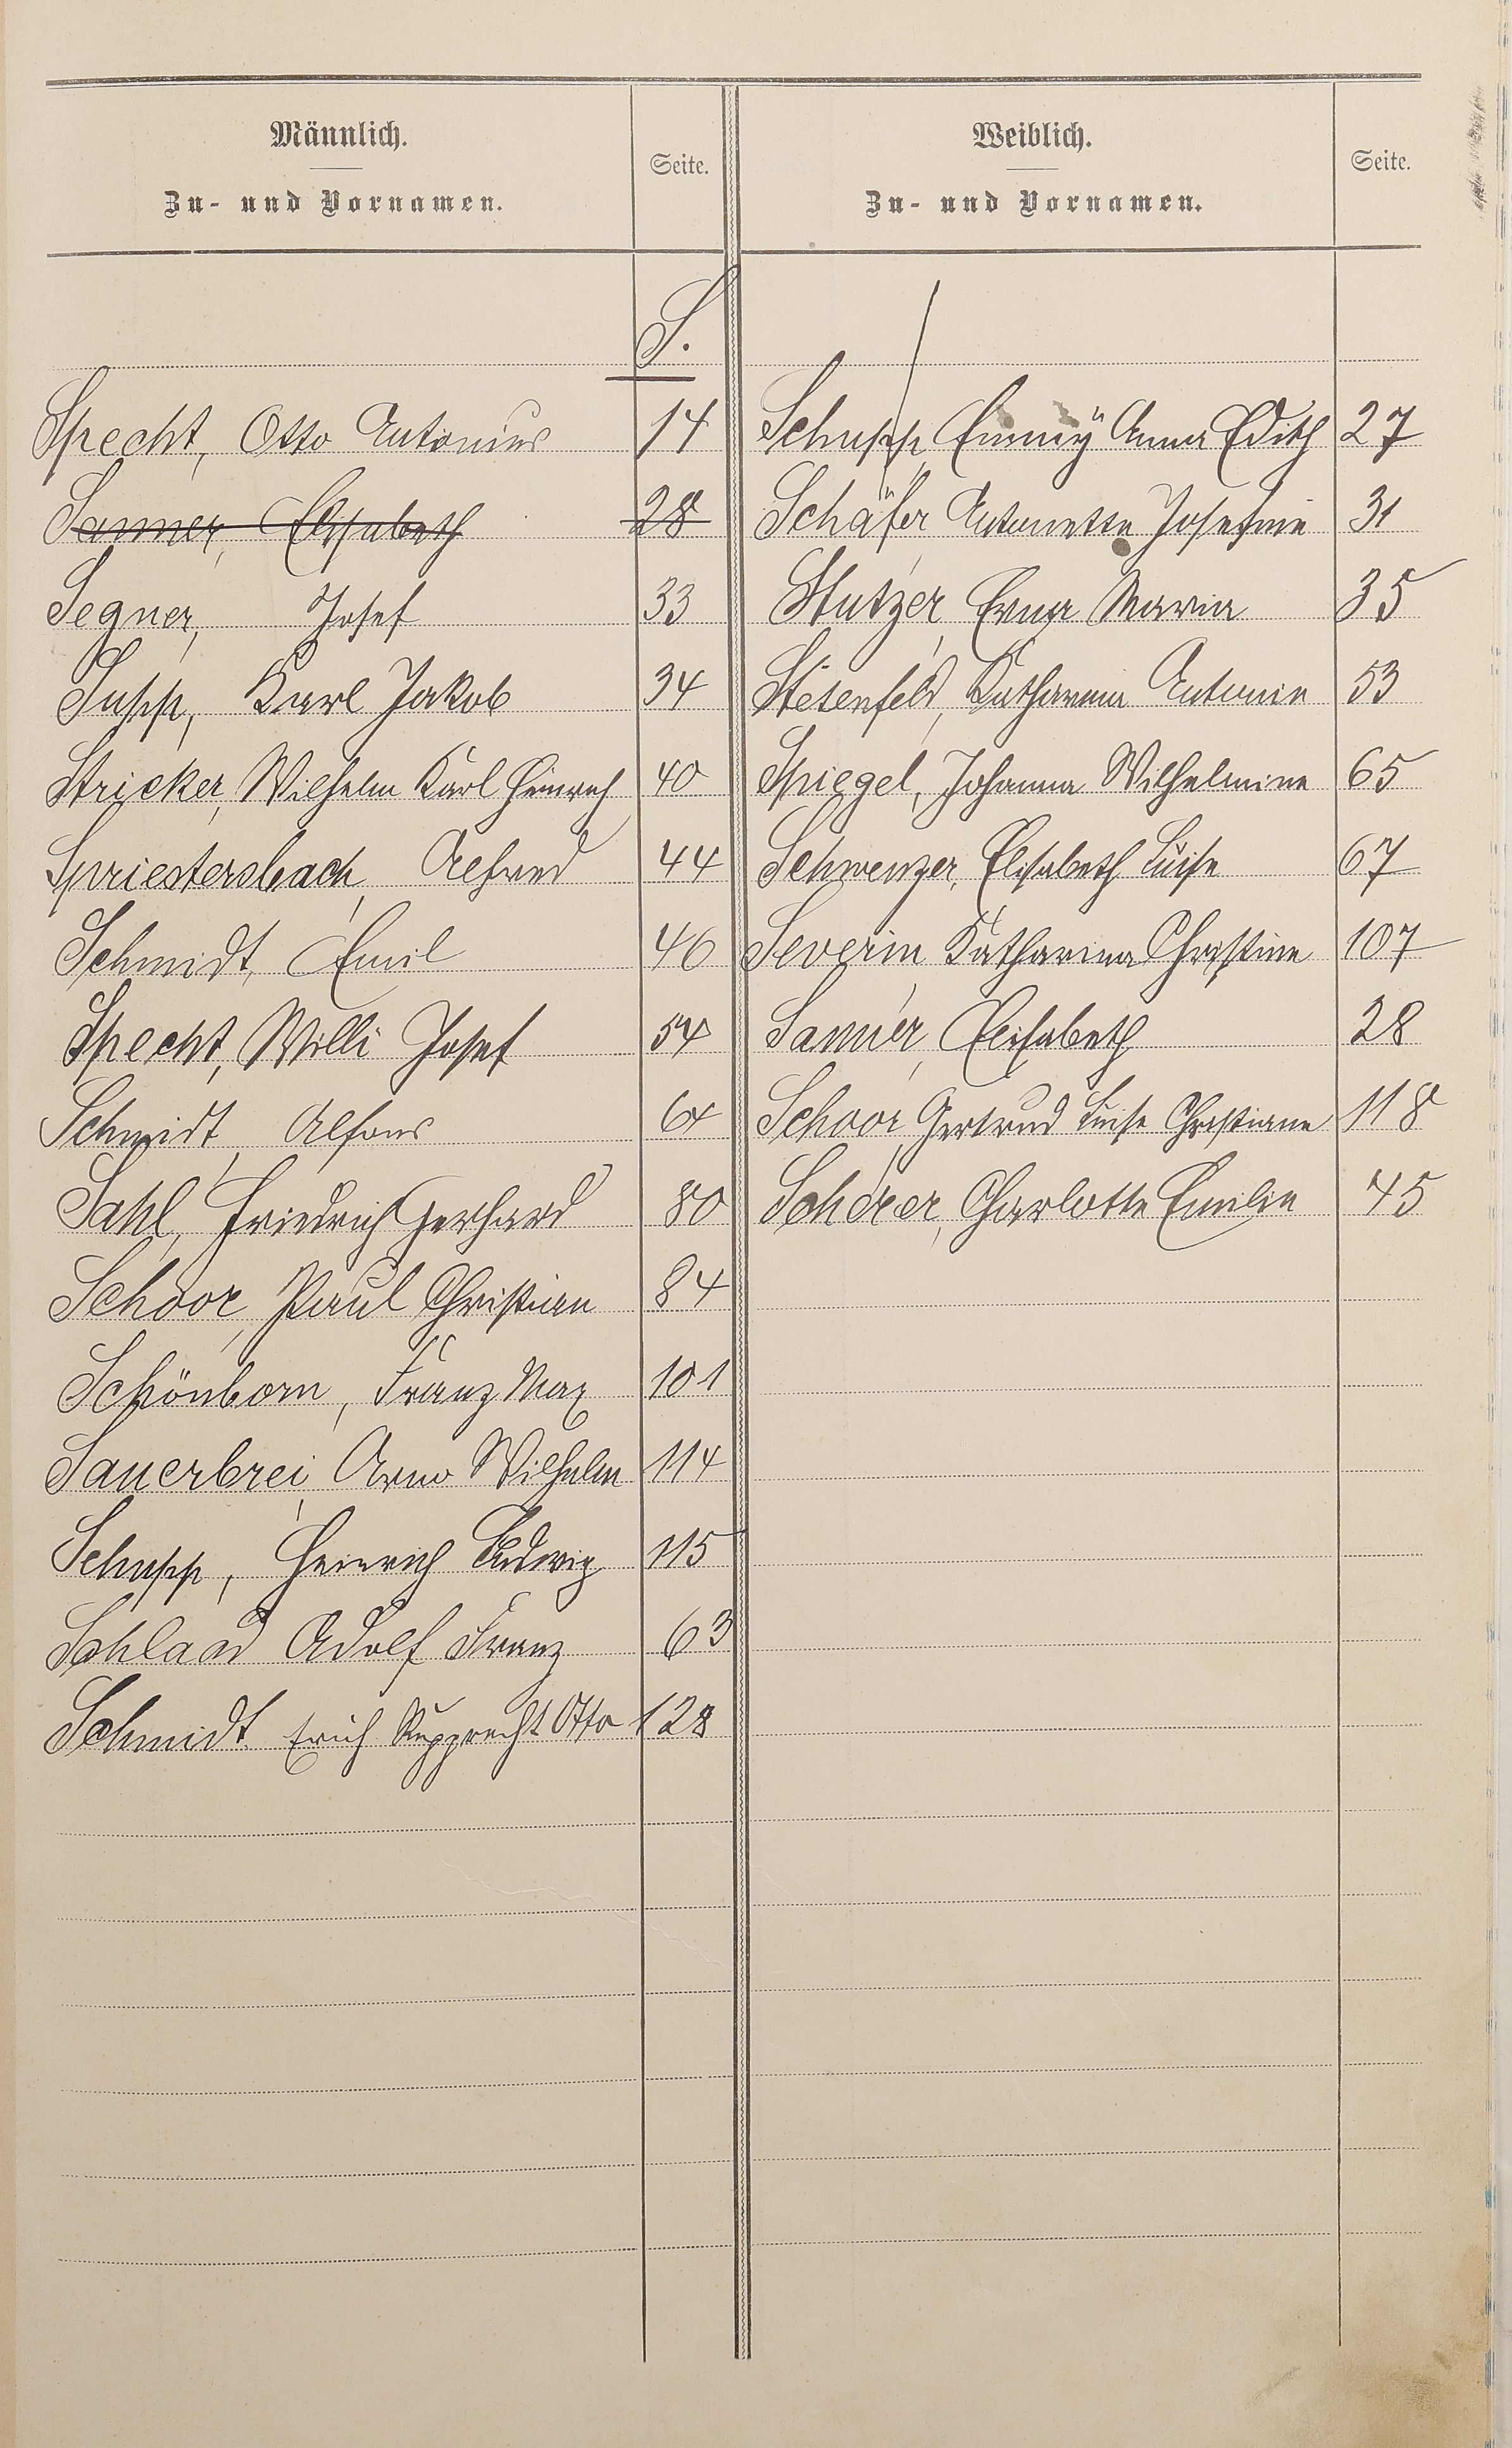 Männlich.
Zu- und Vornamen.
Seite.
Weiblich.
Zu- und Vornamen.
Seite.
S.
Specht, Otto Antonius 14
Sanner, Elisabeth 28
Segner, Josef 33
Supp, Karl Jakob 34
Stricker, Wilhelm Karl Heinrich 40
Spriestersbach, Alfred 44
Schmidt, Emil 46
Specht, Willi Josef 54
Schmidt, Alfons 64
Sahl, Friedrich Gerhard 80
Schoor, Paul Christian 84
Schönborn, Franz Max 101
Sauerbrei, Arno Wilhelm 114
Schupp, Heinrich Ludwig 115
Schlaad Adolf Franz 63
Schmidt Erich Rupprecht Otto 128
Schupp, Emmy Anna Edith 27
Schäfer Antonette Josefine 31
Stutzer, Erna Maria 35
Stesenfeld, Katharina Antonie 53
Spiegel, Johanna Wilhelmine 65
Schwenzer, Elisabeth Luise 67
Severin, Katharina Christine 107
Sanner, Elisabeth 28
Schoor, Gertrud Luise Christiane 118
Scherer, Charlotte Emilie 45